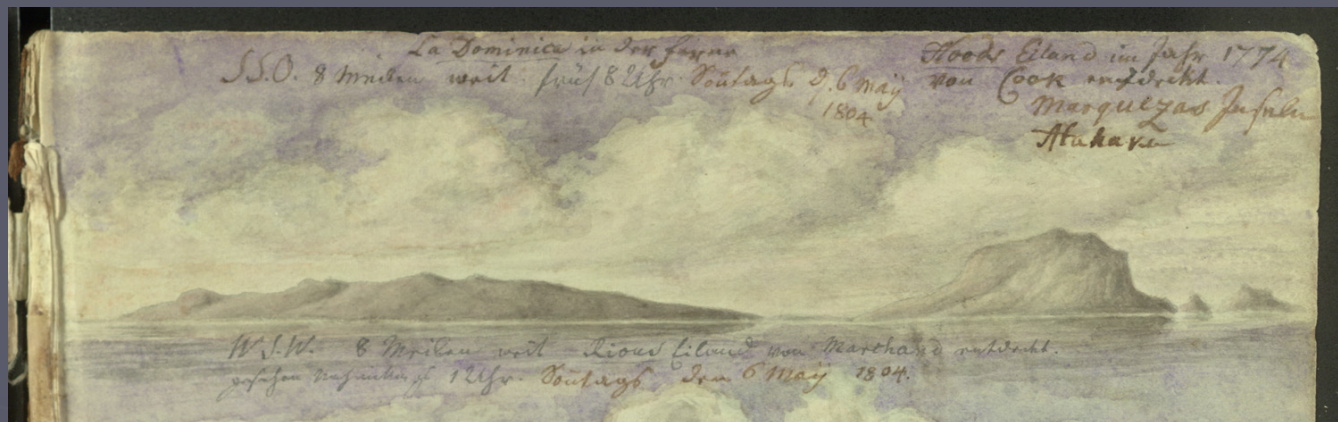 La Dominica in der ferne
S.S.O. 8 Meilen weit. früh 8 Uhr Sontags d. 6 May
1804
Hoods Eiland im Jahr 1774
von Cook entdeckt.
Marquezas Inseln
W.S.W. 8 Meilen weit Rious Eiland von Marchand entdeckt.
gesehen Nachmittags 1 Uhr. Sontags den 6 May 1804.